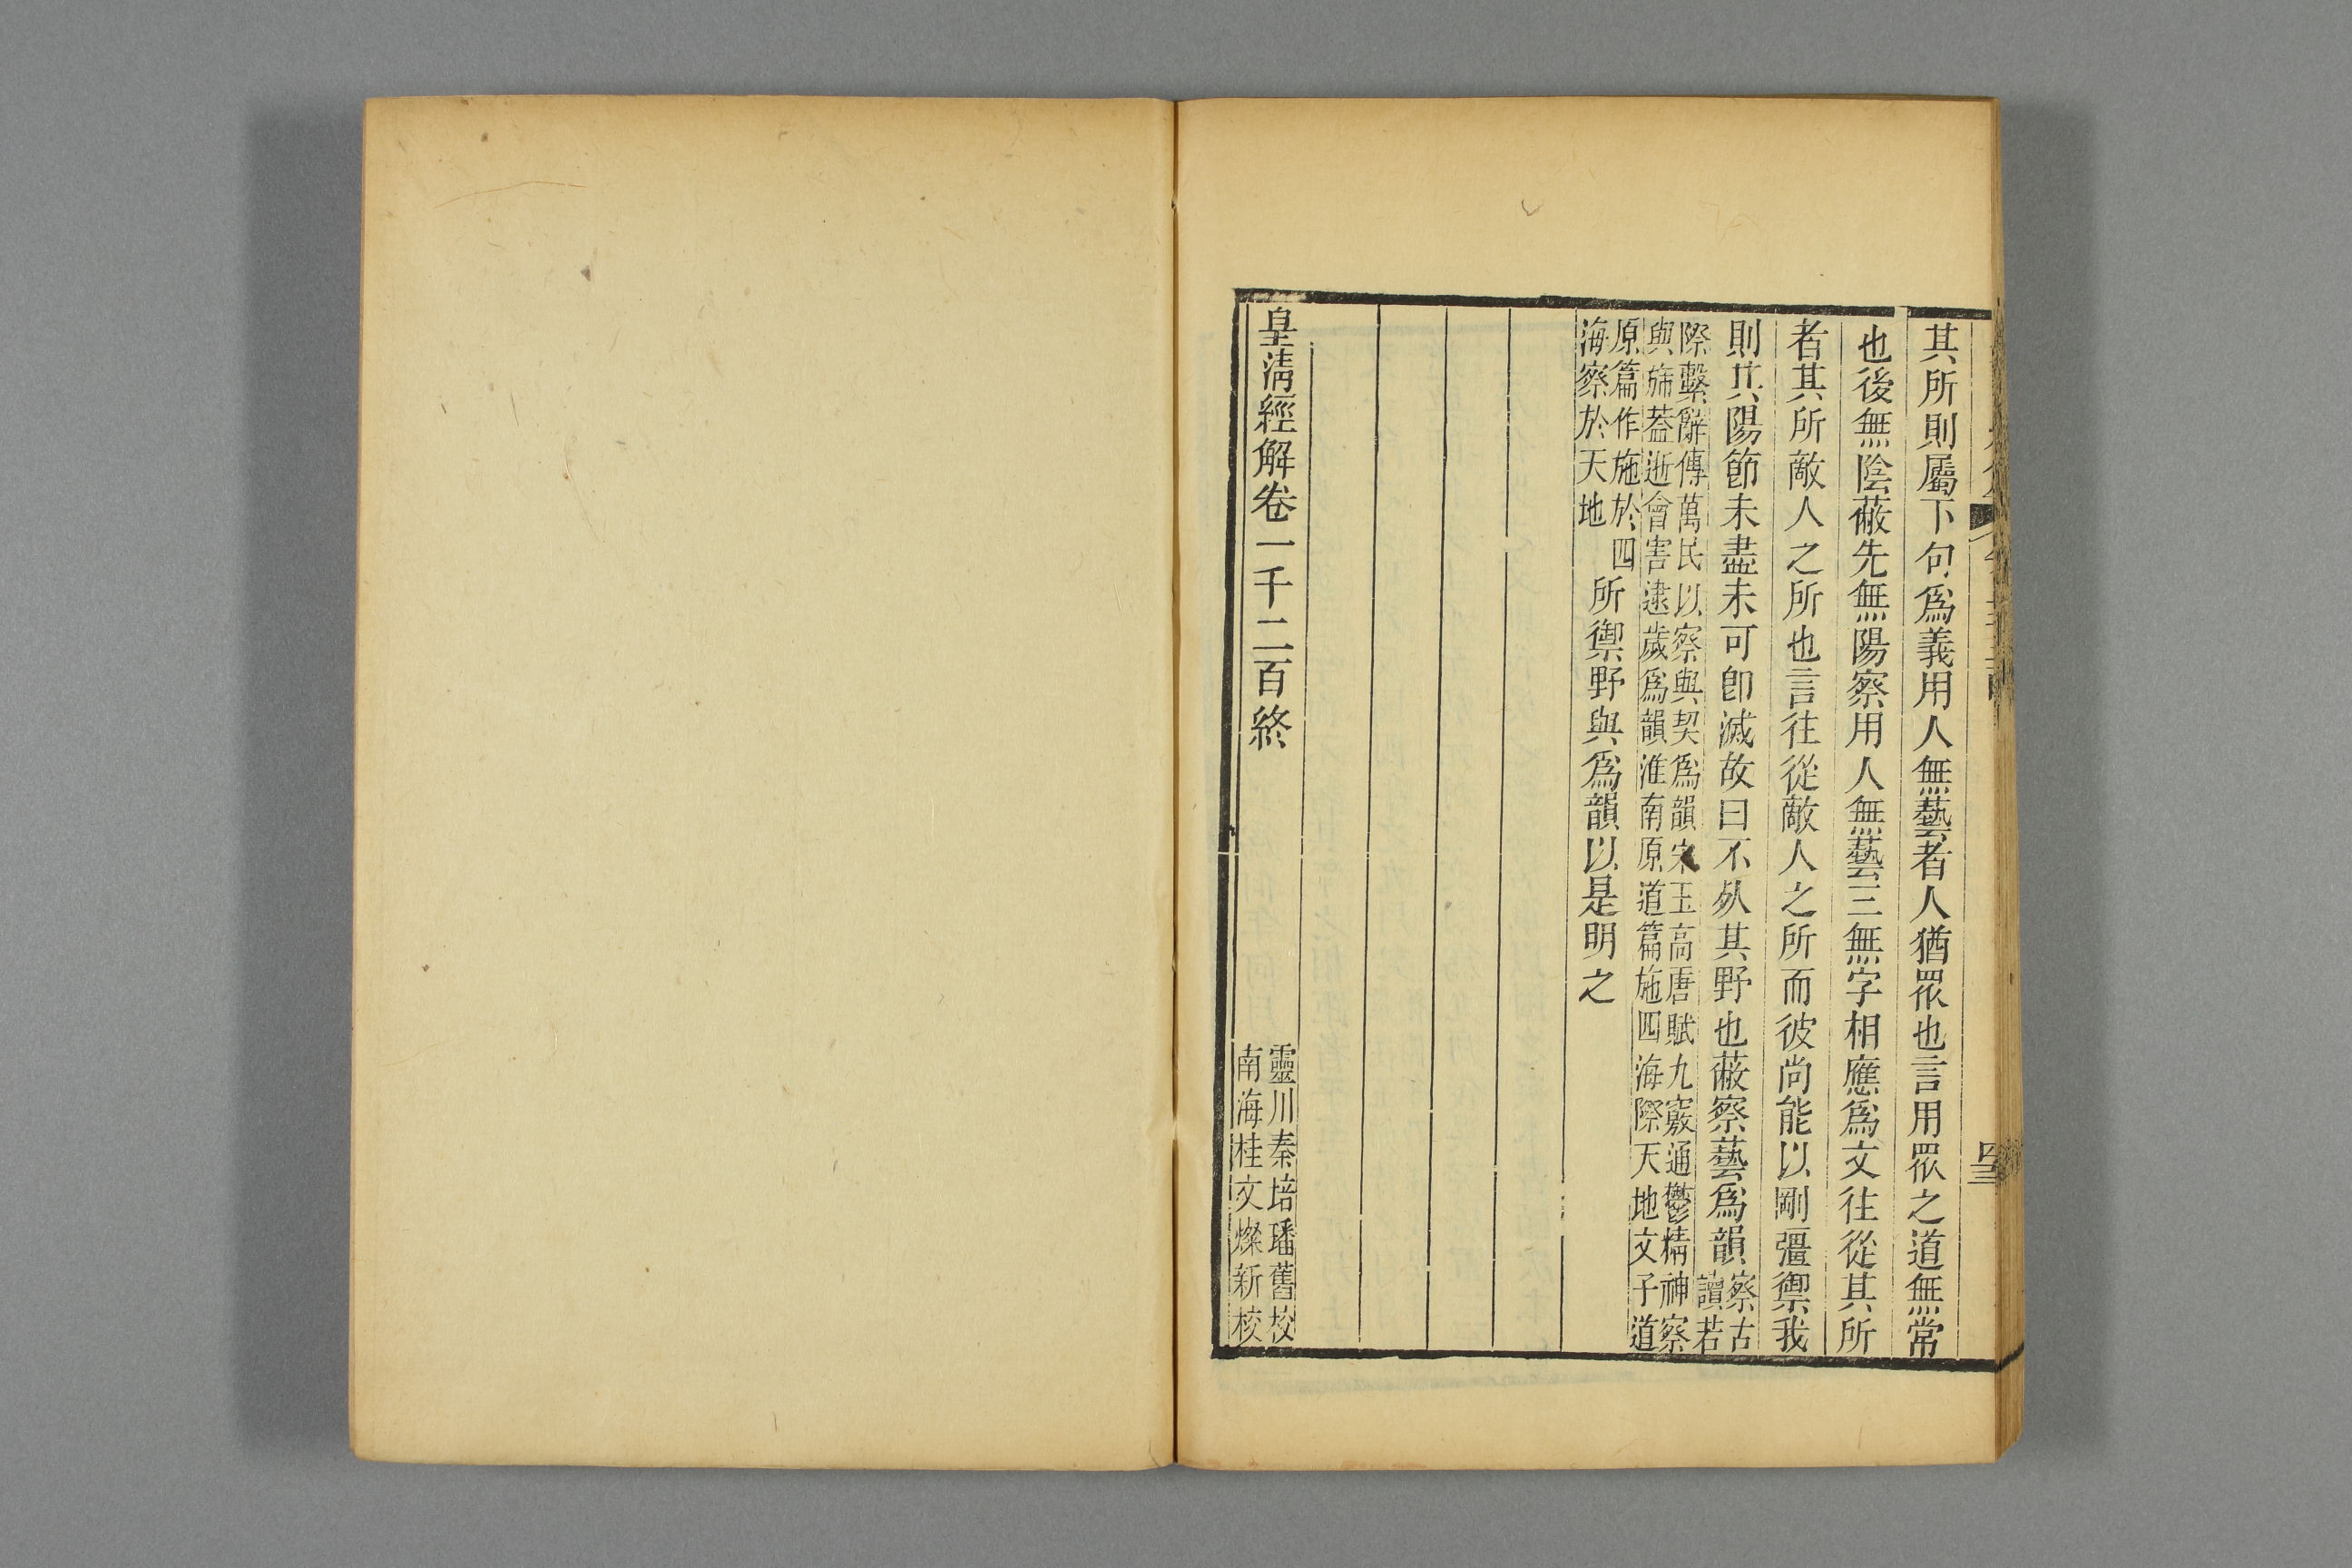 其所則屬下句爲義用人無藝者人猶眾也言用眾之道無常
也後無陰蔽先無陽察用人無藝三無字相應爲文往從其所
者其所敵人之所也言往從敵人之所而彼尚能以剛彊禦我
則其陽節未盡未可卽滅故曰不𣦸其野也蔽察藝爲韻察古
讀若
際繫辭傳萬民以察與契爲韻宋玉高唐賦九竅通鬱精神察
與旆蓋逝會害逮歲爲韻淮南原道篇施四海際天地文子道
原篇作施於四
海察於天地
所禦野與爲韻以是明之
皇清經解卷一千二百終
靈川秦培璠舊校
南海桂文燦新校